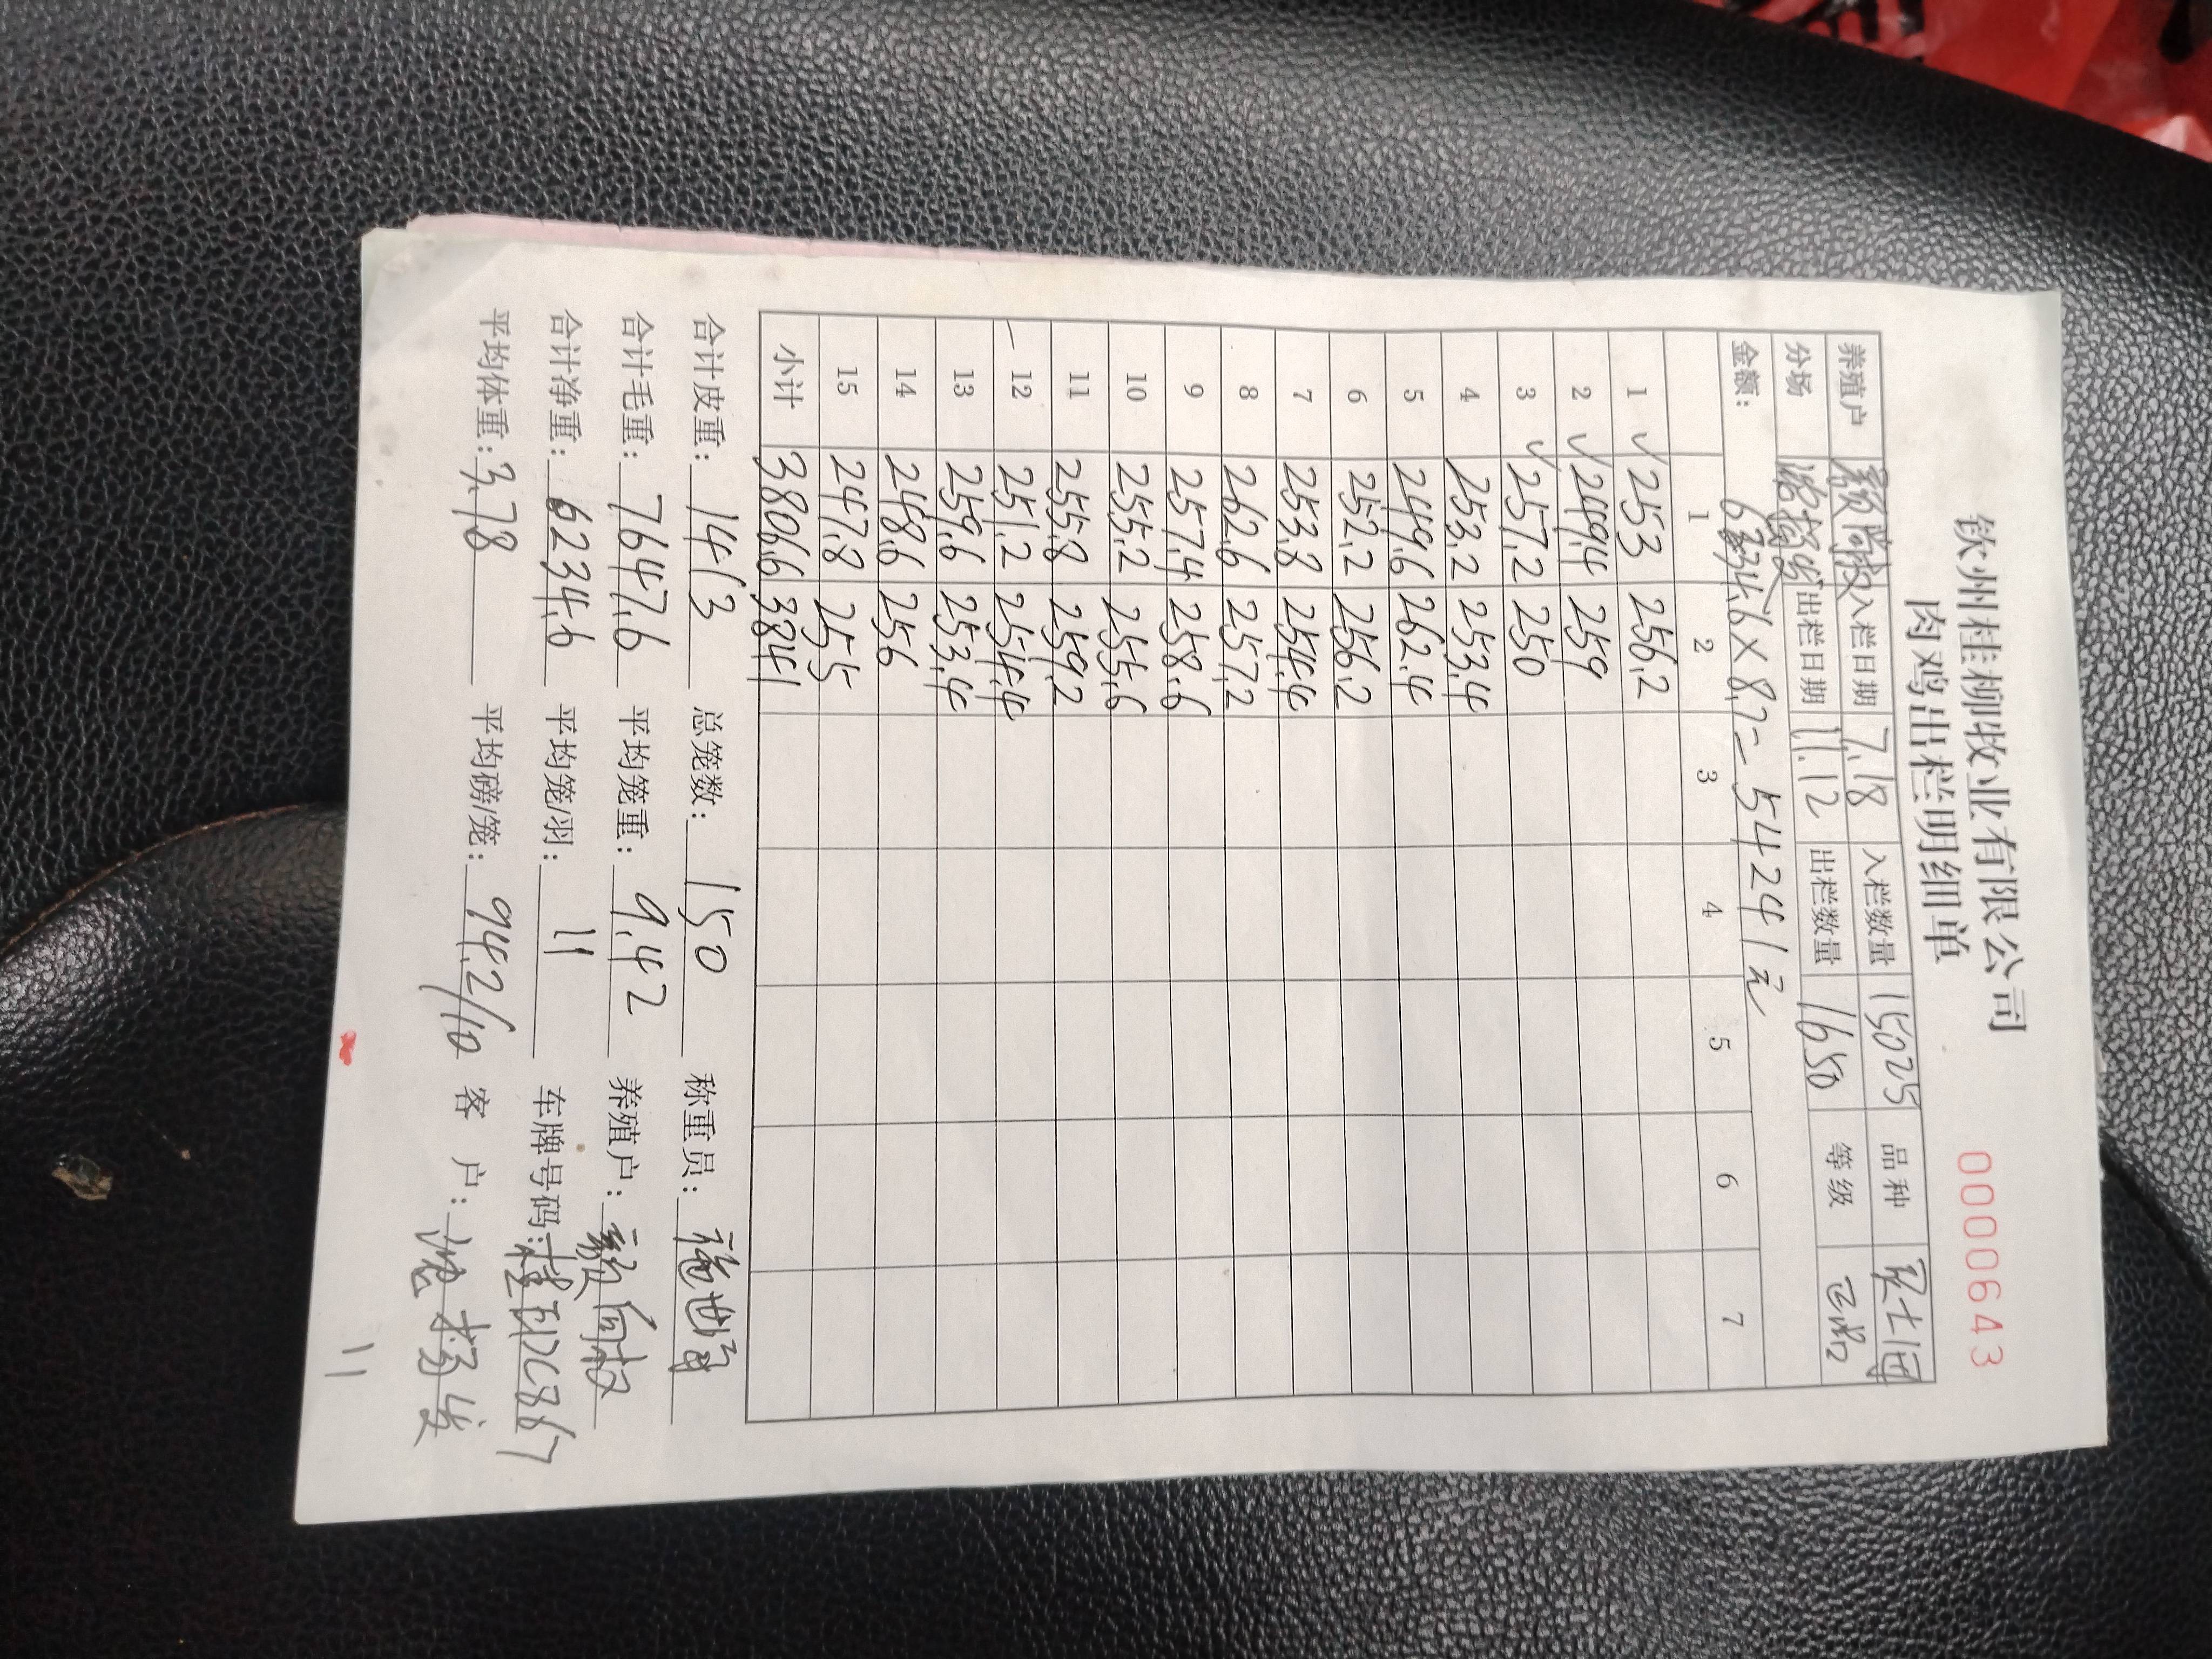 钦州桂柳牧业有限公司
肉鸡出栏明细单
0000643
养殖户 入栏日期 7.18 入栏数量 15025 品种
分场 出栏日期 11.12 出栏数量 1650 等级
金额： 6234.6×8.7=54241元
1 2 3 4 5 6 7
1 ✓ 253 256.2
2 ✓ 249.4 259
3 ✓ 257.2 250
4 253.2 253.4
5 249.6 262.4
6 252.2 256.2
7 253.8 254.4
8 262.6 257.2
9 257.4 258.6
10 255.2 255.6
11 255.8 259.2
12 251.2 254.4
13 259.6 253.4
14 248.6 256
15 247.8 255
小计 3806.6 3841
合计皮重：1413 总笼数：150 称重员：
合计毛重：7647.6 平均笼重：9.42 养殖户：
合计净重：6234.6 平均笼/羽：11 车牌号码：
平均体重：3.78 平均磅/笼：94.2/10 客 户：
11